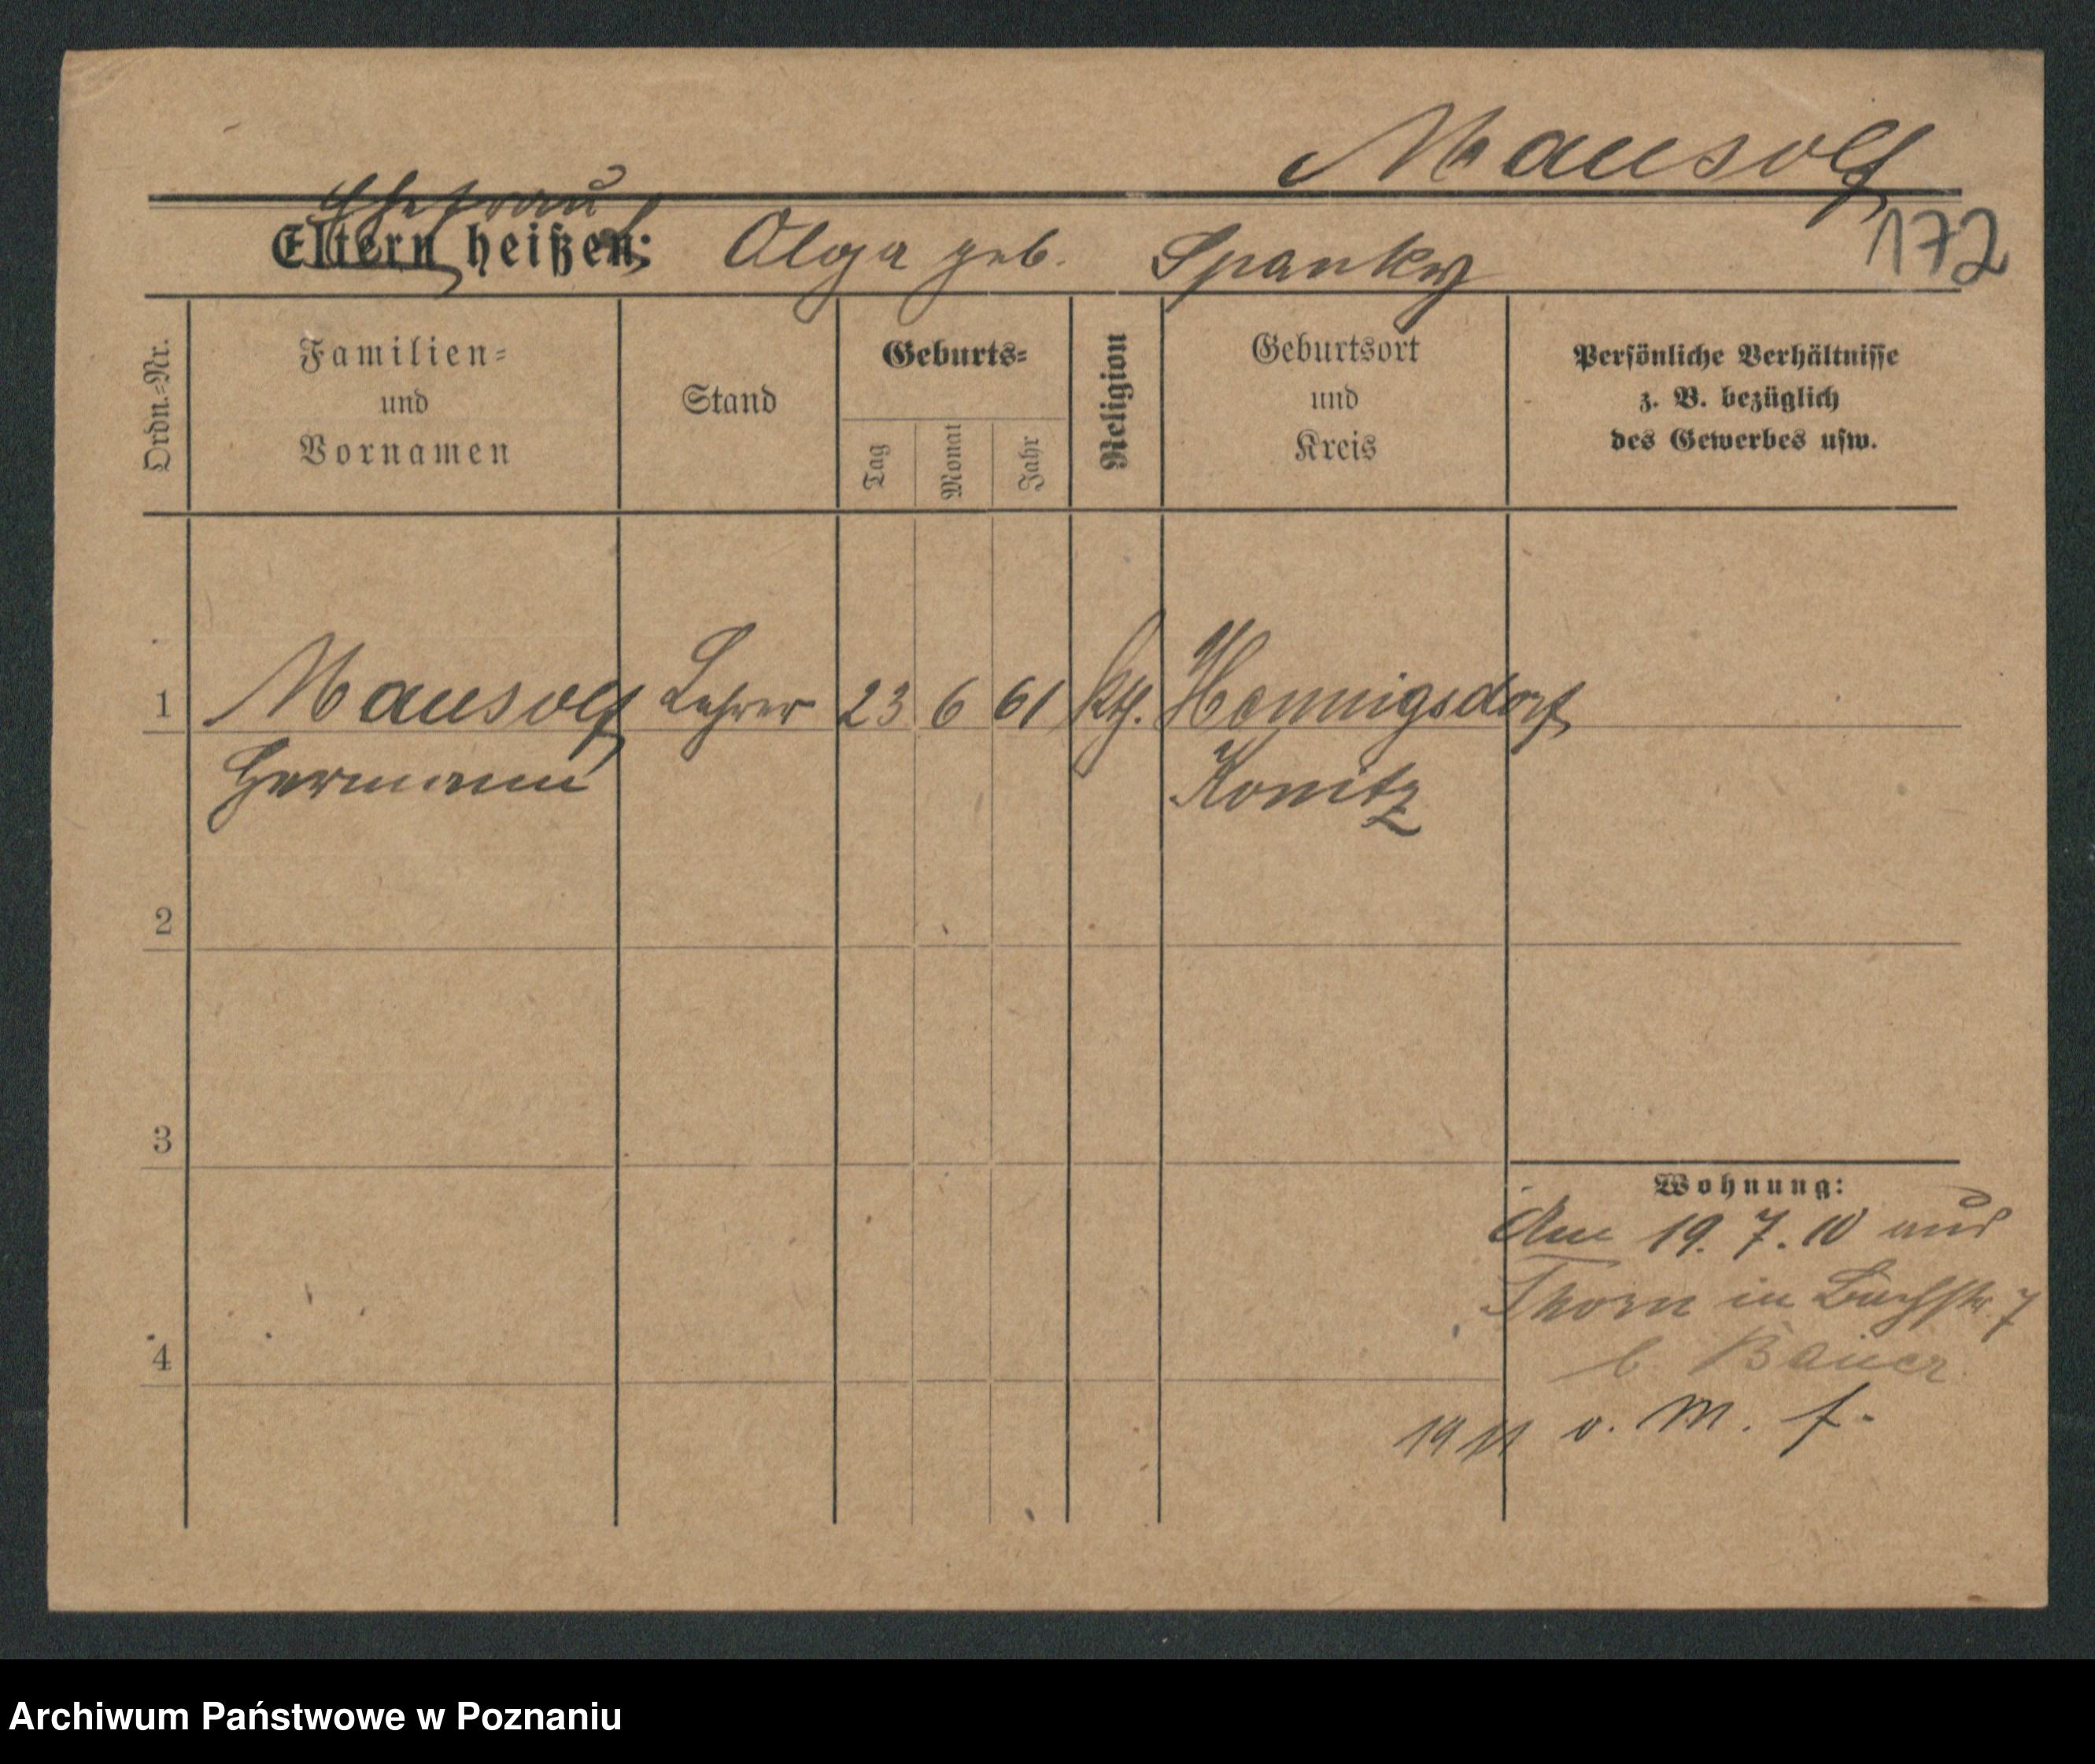 Mausolf
172
Ehefrau
Eltern heißen: Olga geb. Spanky
Ordn.-Nr.
Familien-
und
Vornamen
Stand
Geburts-
Tag
Monat
Jahr
Religion
Geburtsort
und
Kreis
Persönliche Verhältnisse
z. B. bezüglich
des Gewerbes usw.
1 Mausolf Lehrer 23 6 61 kth. Hennigsdorf
Hermann Konitz
2
3
4
Wohnung:
Am 19. 7. 10 aus
Thorn in Bachstr. 7
b. Bauer
1911 v. M. f.
Archiwum Państwowe w Poznaniu